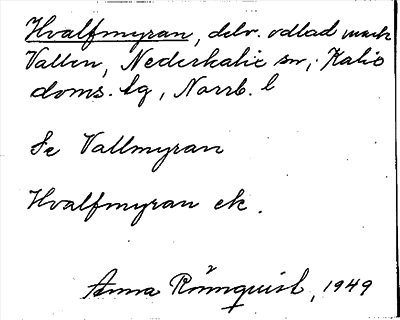 Hvalfmyran, delv. odlad mark
Vallen, Nederkalix sn, Kalix
doms. tg, Norrb. l
Se Vallmyran
Hvalfmyran ek.
Anna Rönnquist, 1949